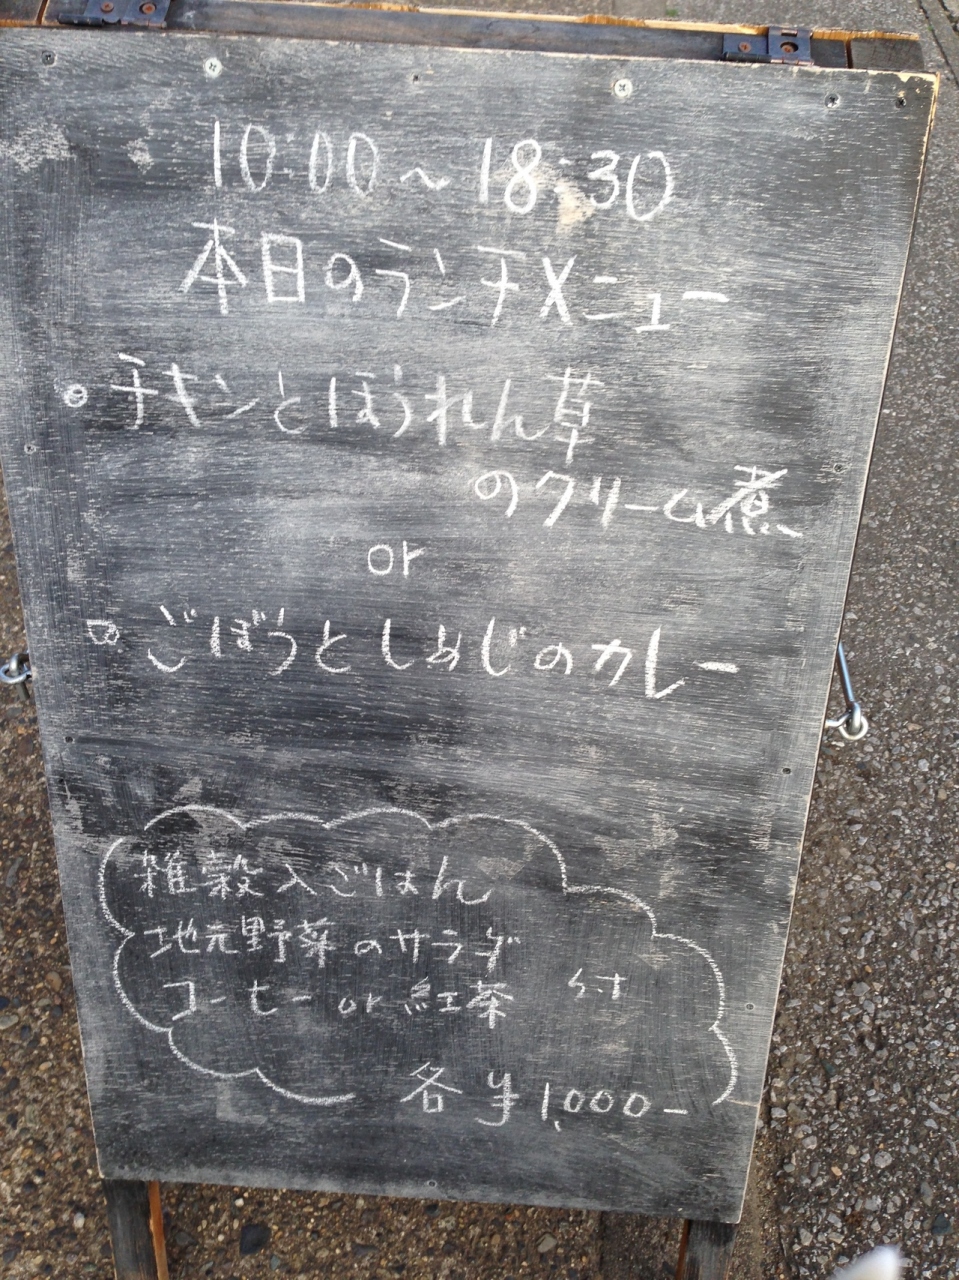 10:00～18:30
本日のランチメニュー
チキンとほうれん草
のクリーム煮
or
ごぼうとしめじのカレー
雑穀入ごはん
地元野菜のサラダ
コーヒー or 紅茶 付
各 ¥1,000-